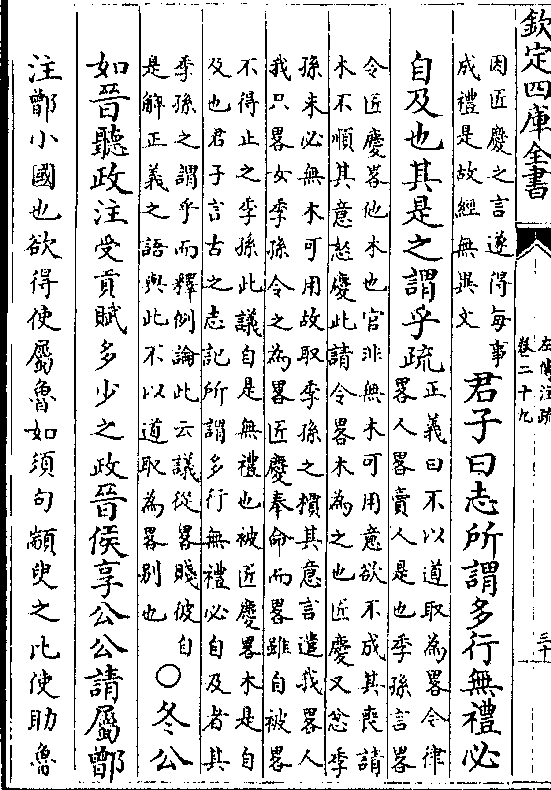 欽定四庫全書
左傳注疏
卷二十九
三十
因匠慶之言遂得每事
成禮是故經無異文
君子曰志所謂多行無禮必
自及也其是之謂乎疏
正義曰不以道取為畧令律
畧人畧賣人是也季孫言畧
令匠慶畧他木也官非無木可用意欲不成其喪請
木不順其意怒慶此請令畧木為之也匠慶又忿季
孫未必無木可用故取季孫之檟其意言遣我畧人
我只畧女季孫令之為畧匠慶奉命而畧雖自被畧
不得止之季孫此議自是無禮也被匠慶畧木是自
及也君子言古之志記所謂多行無禮必自及者其
季孫之謂乎而釋例論此云議從畧賤彼自
是解正義之語與此不以道取為畧别也
○冬公
如晉聽政注受貢賦多少之政晉侯享公公請屬鄫
注鄫小國也欲得使屬魯如須句顓臾之比使助魯